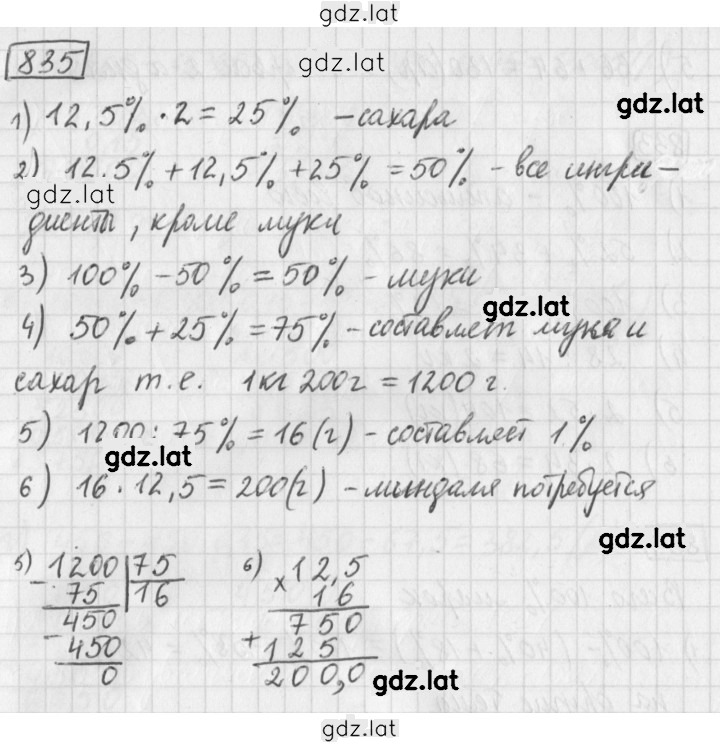 gdz.lat
835
gdz.lat
1) 12,5% · 2 = 25% – сахара
gdz.lat
2) 12.5% + 12,5% + 25% = 50% – все ингри–
gdz.lat
диенты, кроме муки
3) 100% – 50% = 50% – муки
gdz.lat
4) 50% + 25% = 75% – составляет мука и
сахар т.е. 1кг 200г = 1200 г.
5) 1200 : 75% = 16 (г) – составляет 1%
gdz.lat
6) 16 · 12,5 = 200(г) – миндаля потребуется
gdz.lat
5) 1200 | 75 6) 12,5
– 75 16 × 16
450 750
– 450 + 125
0 200,0
gdz.lat
gdz.lat